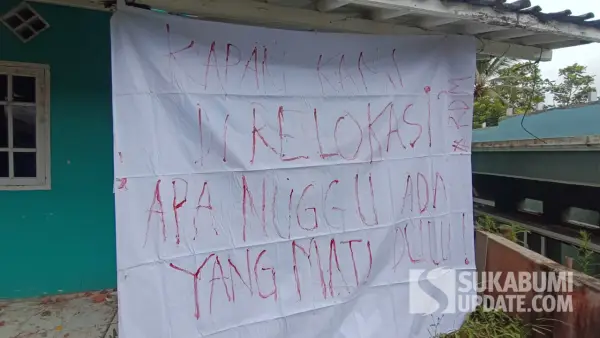 KAPAN KAMI
DI RELOKASI
APA NUGGU ADA
YANG MATI DULU!
SUKABUMI
UPDATE.COM